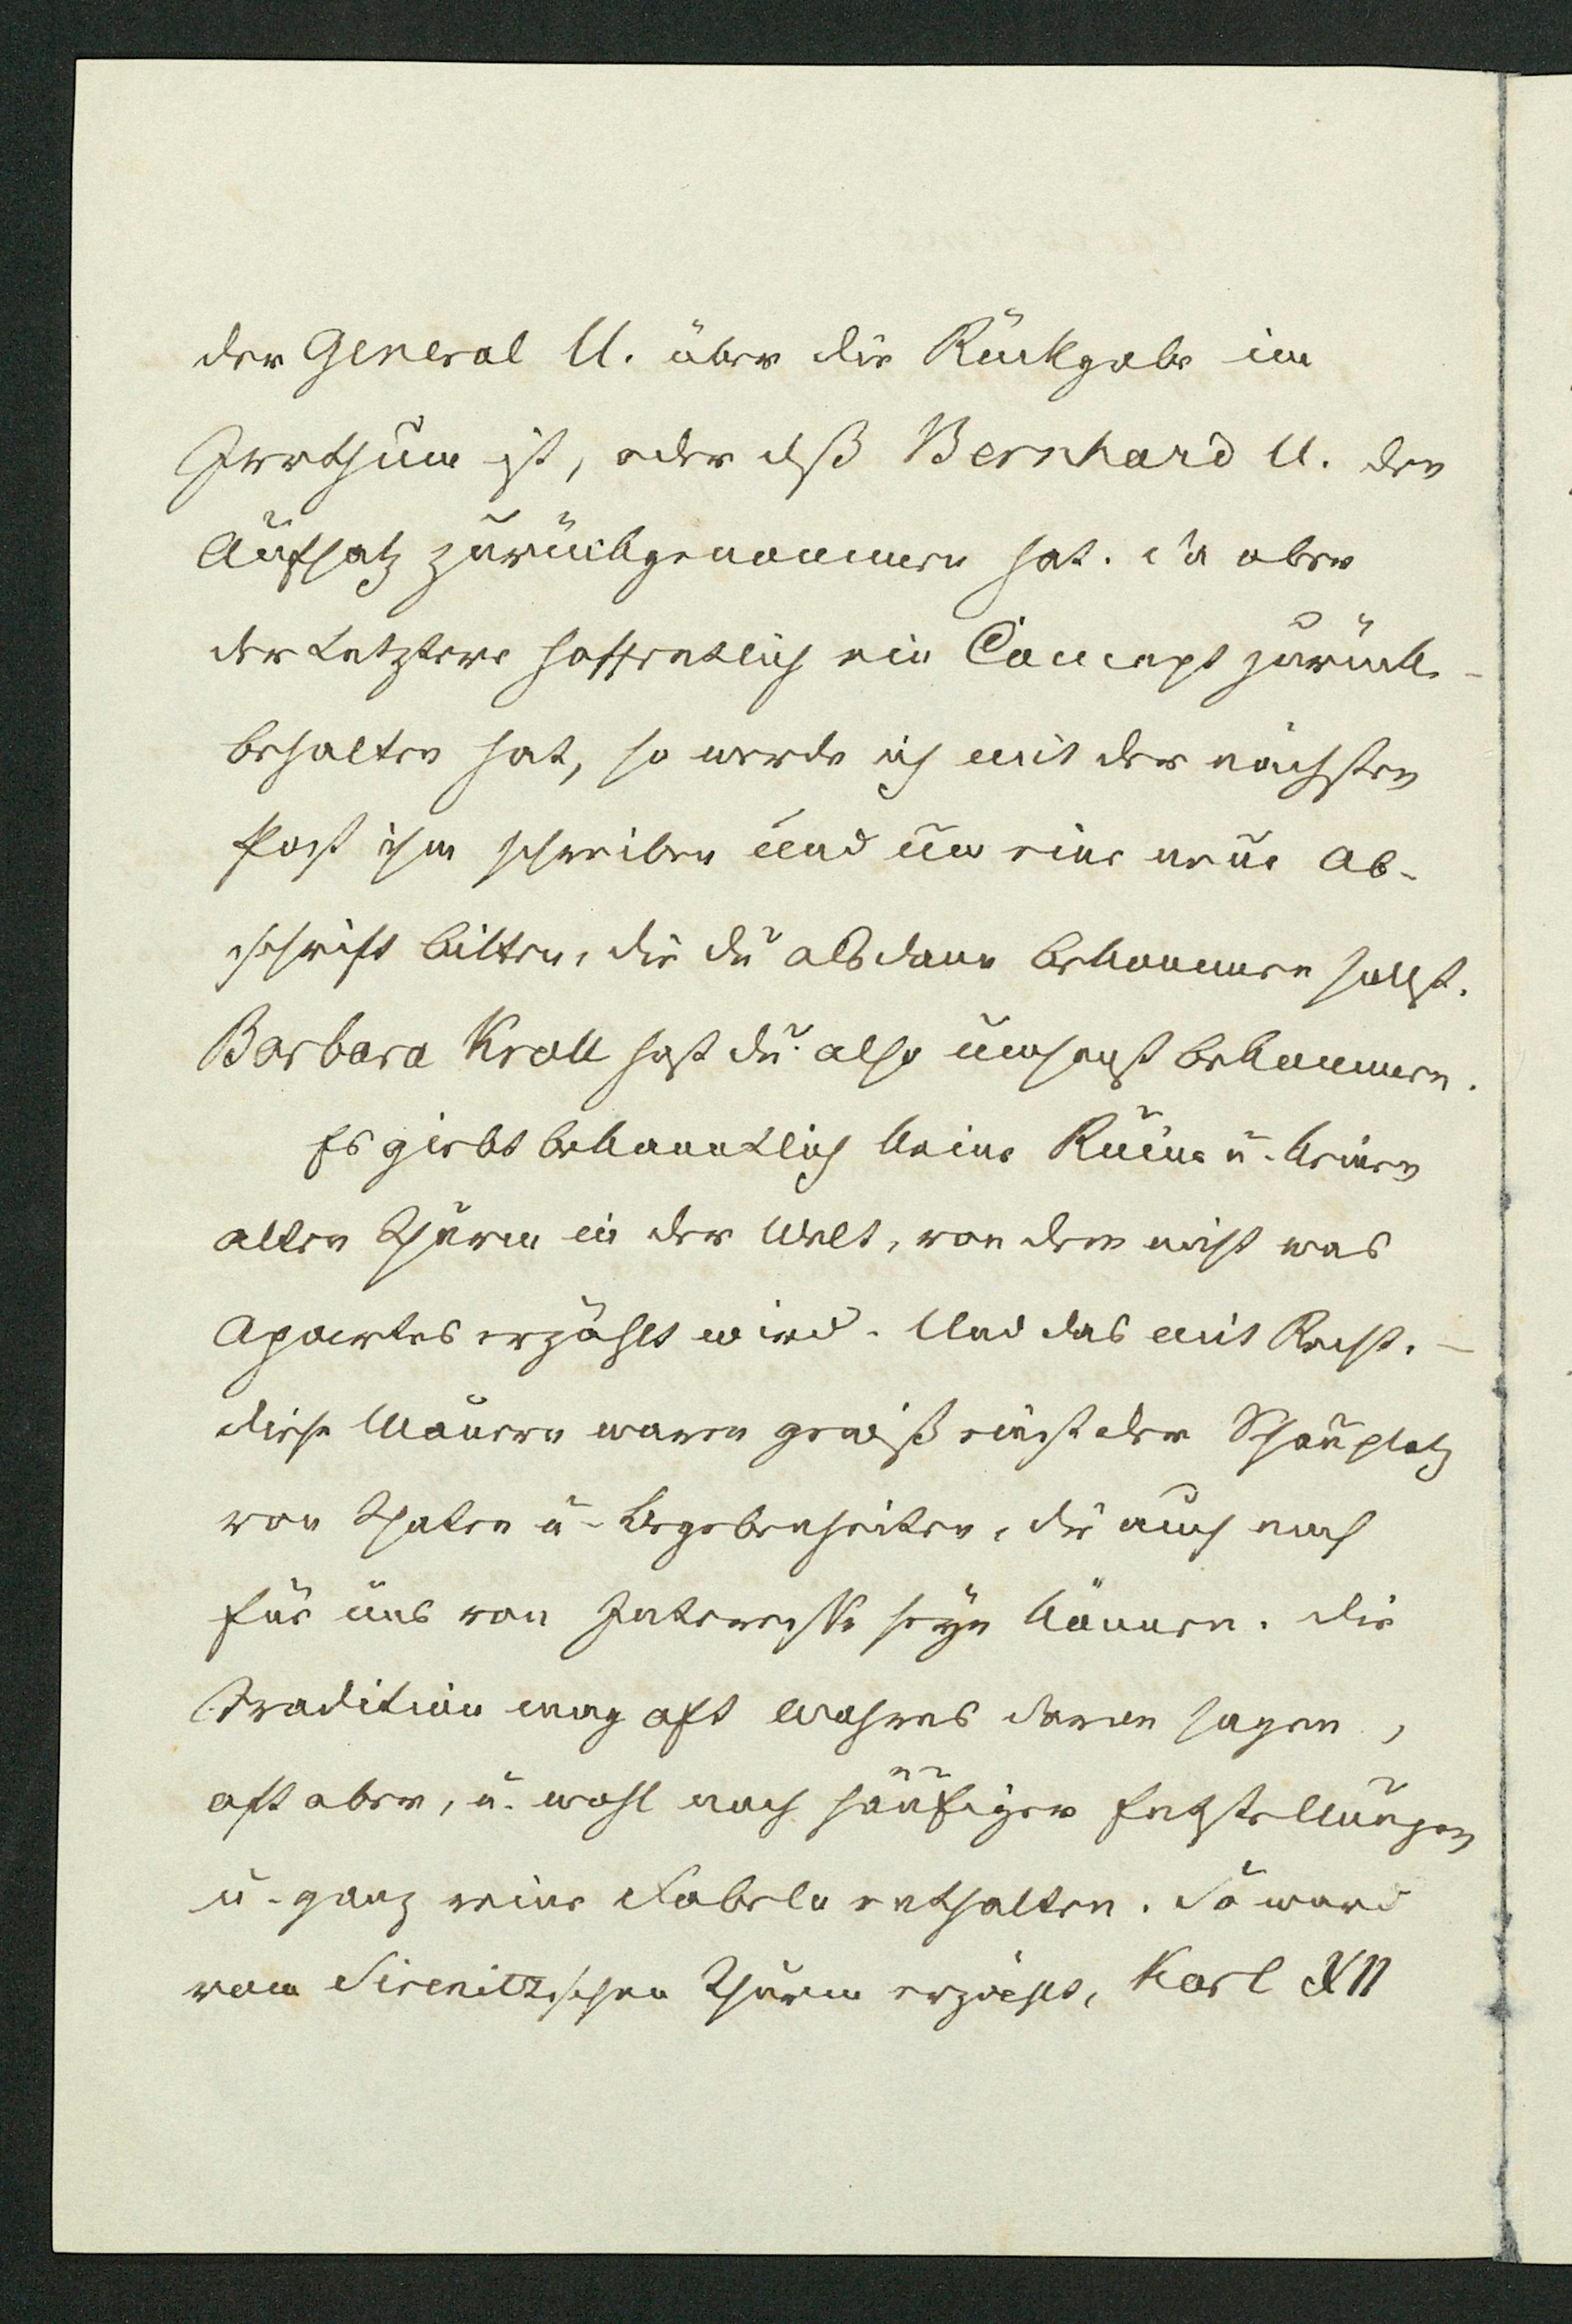 der General U. über die Rückgabe im
Irrthum ist, oder dß Bernhard U. den
Aufsatz zurückgenommen hat. Da aber
der Letztere hoffentlich ein Concept zurück-
behalten hat, so werde ich mit der nächsten
Post ihm schreiben und um eine neue Ab-
schrift bitten, die du alsdann bekommen sollst.
Barbara Kroll hast du also umsonst bekommen.
Es giebt bekanntlich keine Ruine u. keinen
alten Thurm in der Welt, von dem nicht was
Apartes erzählt wird. Und das mit Recht. –
Diese Mauern waren gewiß einst der Schauplatz
von Thaten u. Begebenheiten, die auch noch
für uns von Interesse seyn können. Die
Tradition mag oft Wahres davon sagen,
oft aber, u. wohl noch häufiger Entstellungen
u. ganz reine Fabeln enthalten. So ward
vom Sirenitzschen Thurm erzählt, Karl XII